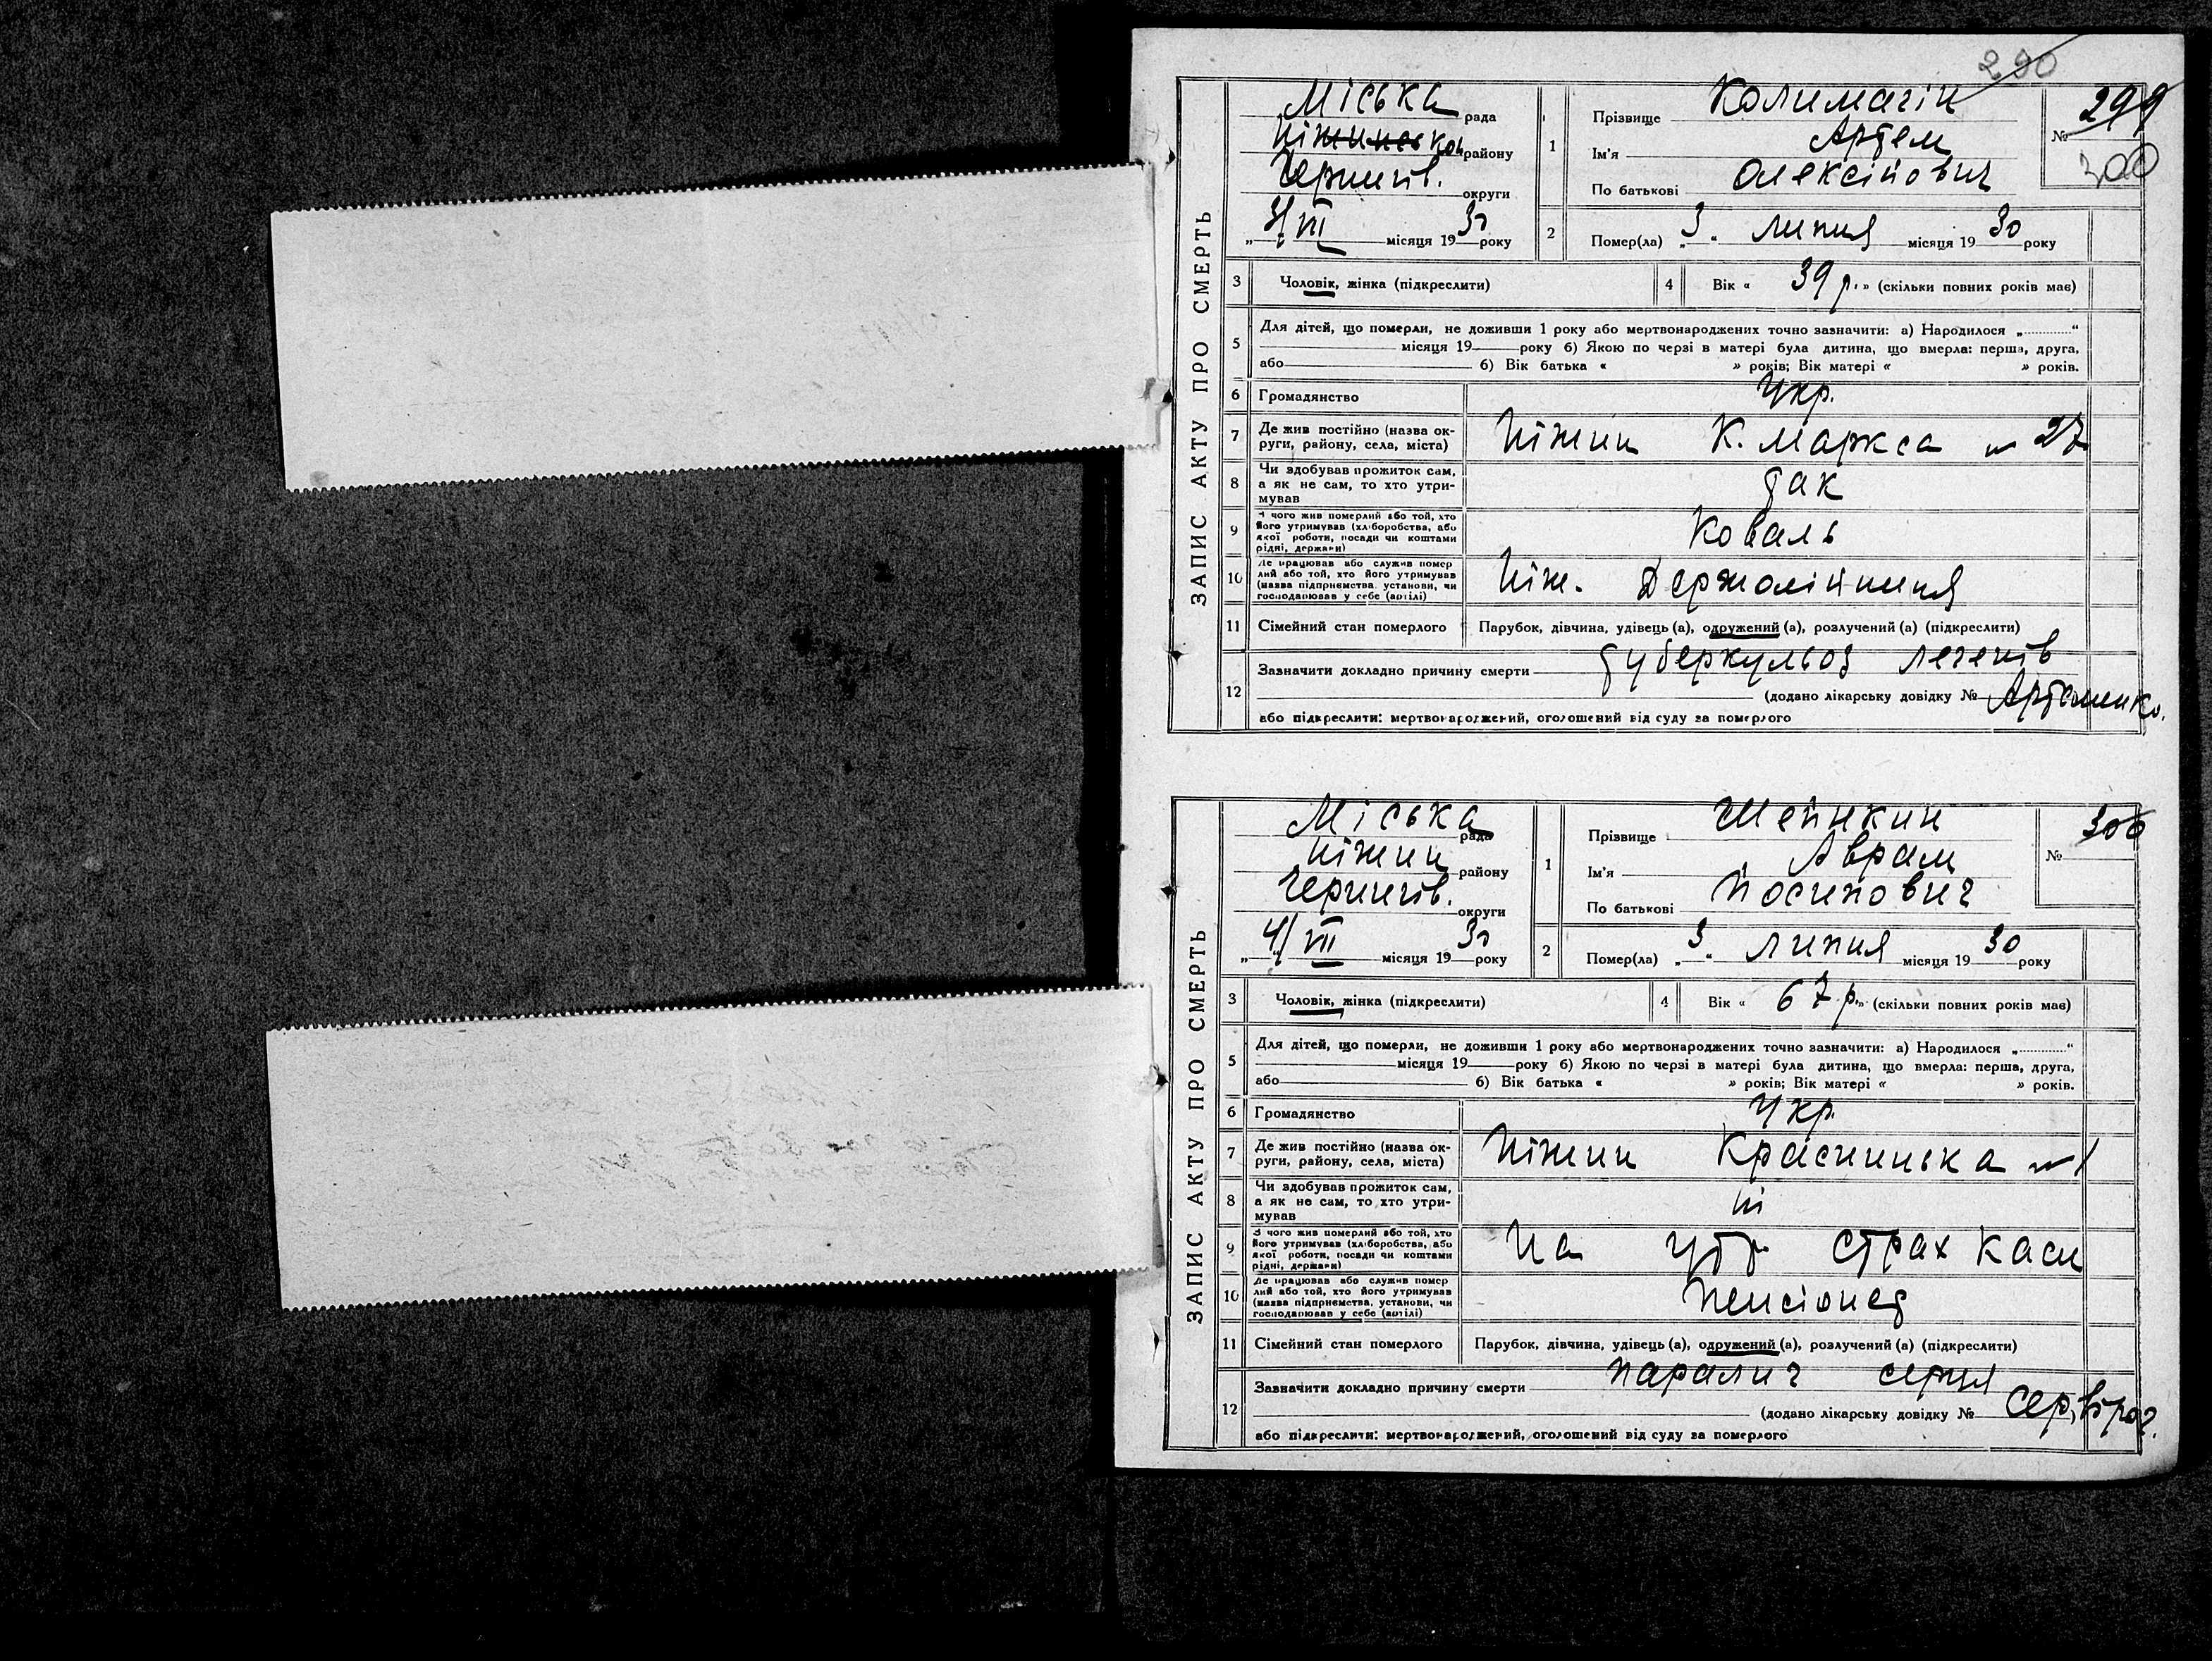 290
ЗАПИС АКТУ ПРО СМЕРТЬ
Міська рада
Ніжинської району
Чернигів. округи
„ 3/VII місяця 1930 року
1
Прізвище Колимагін
Ім'я Артем
По батькові Олексійович
№ 299
300
2 Помер(ла) „ 3 “ липня місяця 1930 року
3 Чоловік, жінка (підкреслити)
4 Вік « 39 р. » (скільки повних років має)
5 Для дітей, що померли, не доживши 1 року або мертвонароджених точно зазначити: а) Народилося „ “
місяця 19 року б) Якою по черзі в матері була дитина, що вмерла: перша, друга,
або б) Вік батька « » років; Вік матері « » років.
6 Громадянство Укр.
7 Де жив постійно (назва округи, району, села, міста) Ніжин К. Маркса № 27
8 Чи здобував прожиток сам,
а як не сам, то хто утри-
мував
так
9 З чого жив померлий або той, хто
його утримував (хліборобства, або
якої роботи, посади чи коштами
рідні, держави)
Коваль
10 Де працював або служив помер
лий або той, хто його утримував
(назва підприємства, установи, чи
господарював у себе (артілі)
Ніж. Держолійниця
11 Сімейний стан померлого Парубок, дівчина, удівець (а), одружений (а), розлучений (а) (підкреслити)
12 Зазначити докладно причину смерти туберкульоз легенів
(додано лікарську довідку № Артеменко.
або підкреслити: мертвонароджений, оголошений від суду за померлого
ЗАПИС АКТУ ПРО СМЕРТЬ
Міська рада
Ніжин району
Чернигів. округи
„ 4/VII місяця 1930 року
1
Прізвище Шейнкин
Ім'я Аврам
По батькові Йосипович
№ 300
2 Помер(ла) „ 3 “ липня місяця 1930 року
3 Чоловік, жінка (підкреслити)
4 Вік « 67 р. » (скільки повних років має)
5 Для дітей, що померли, не доживши 1 року або мертвонароджених точно зазначити: а) Народилося „ “
місяця 19 року б) Якою по черзі в матері була дитина, що вмерла: перша, друга,
або б) Вік батька « » років; Вік матері « » років.
6 Громадянство Укр.
7 Де жив постійно (назва округи, району, села, міста) Ніжин № 1
8 Чи здобував прожиток сам,
а як не сам, то хто утри-
мував
ні
9 З чого жив померлий або той, хто
його утримував (хліборобства, або
якої роботи, посади чи коштами
рідні, держави)
На утр страх каси
10 Де працював або служив помер
лий або той, хто його утримував
(назва підприємства, установи, чи
господарював у себе (артілі)
Пенсіонер
11 Сімейний стан померлого Парубок, дівчина, удівець (а), одружений (а), розлучений (а) (підкреслити)
12 Зазначити докладно причину смерти параліч серця
(додано лікарську довідку №
або підкреслити: мертвонароджений, оголошений від суду за померлого